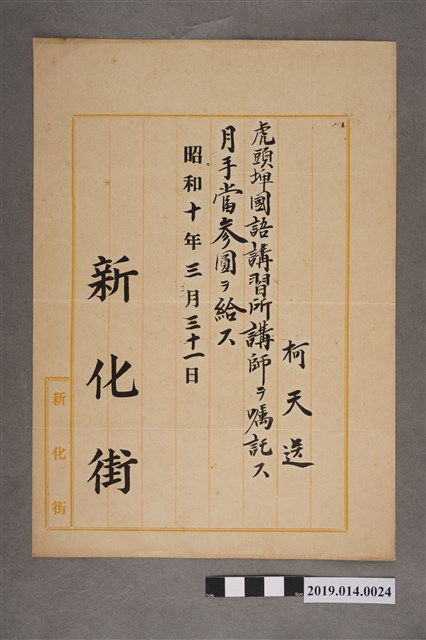 柯天送
虎頭埤國語講習所講師ヲ嘱託ス
月手當参圓ヲ給ス
昭和十年三月三十一日
新化街
新化街
2019.014.0024